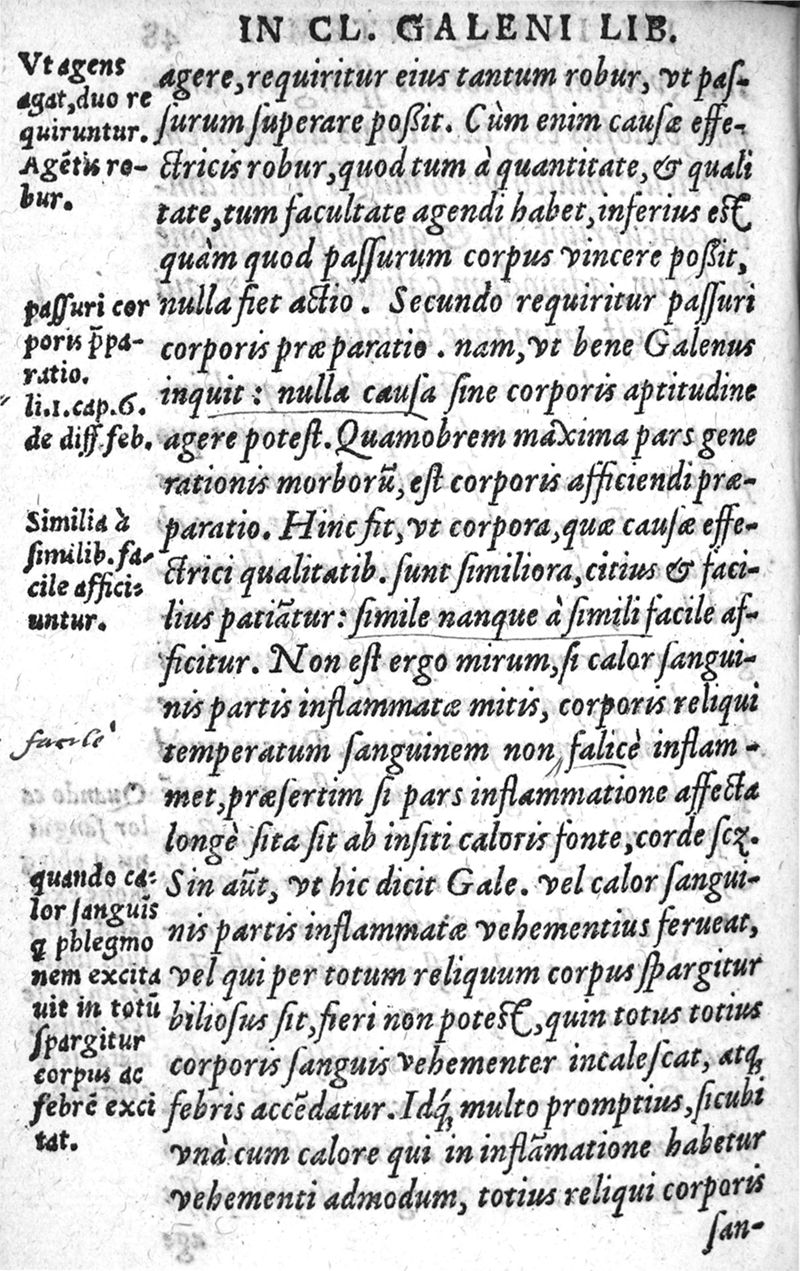 IN CL. GALENI LIB.
Vt agens
agat, duo re
quiruntur.
Agētis ro-
bur.
agere, requiritur eius tantum robur, vt paſ-
ſurum ſuperare poßit. Cùm enim cauſæ effe-
ctricis robur, quod tum à quantitate, & quali
tate, tum facultate agendi habet, inferius eſt
quàm quod paſſurum corpus vincere poßit,
nulla fiet actio. Secundò requiritur paſſuri
corporis præparatio. nam, vt bene Galenus
inquit: nulla cauſa ſine corporis aptitudine
agere poteſt. Quamobrem maxima pars gene
rationis morborū, eſt corporis afficiendi præ-
paratio. Hinc fit, vt corpora, quæ cauſæ effe-
ctrici qualitatib. ſunt ſimiliora, citius & faci-
lius patiātur: ſimile nanque à ſimili facile af-
ficitur. Non eſt ergo mirum, ſi calor ſangui-
nis partis inflammatæ mitis, corporis reliqui
temperatum ſanguinem non falicè inflam-
met, præſertim ſi pars inflammatione affecta
longè ſita ſit ab inſiti caloris fonte, corde ſcꝫ.
Sin aūt, vt hic dicit Gale. vel calor ſangui-
nis partis inflammatæ vehementius ferueat,
vel qui per totum reliquum corpus ſpargitur
bilioſus ſit, fieri non poteſt, quin totus totius
corporis ſanguis vehementer incaleſcat, atq;
febris accēdatur. Idq́; multo promptius, ſicubi
vnà cum calore qui in inflāmatione habetur
vehementi admodum, totius reliqui corporis
ſan-
paſſuri cor
poris p̄pa-
ratio.
li.1.cap.6.
de diff.feb.
Similia à
ſimilib. fa-
cile affici-
untur.
facile
quando ca-
lor ſanguīs
q phlegmo
nem excita
uit in totū
ſpargitur
corpus ac
febrē exci
tat.